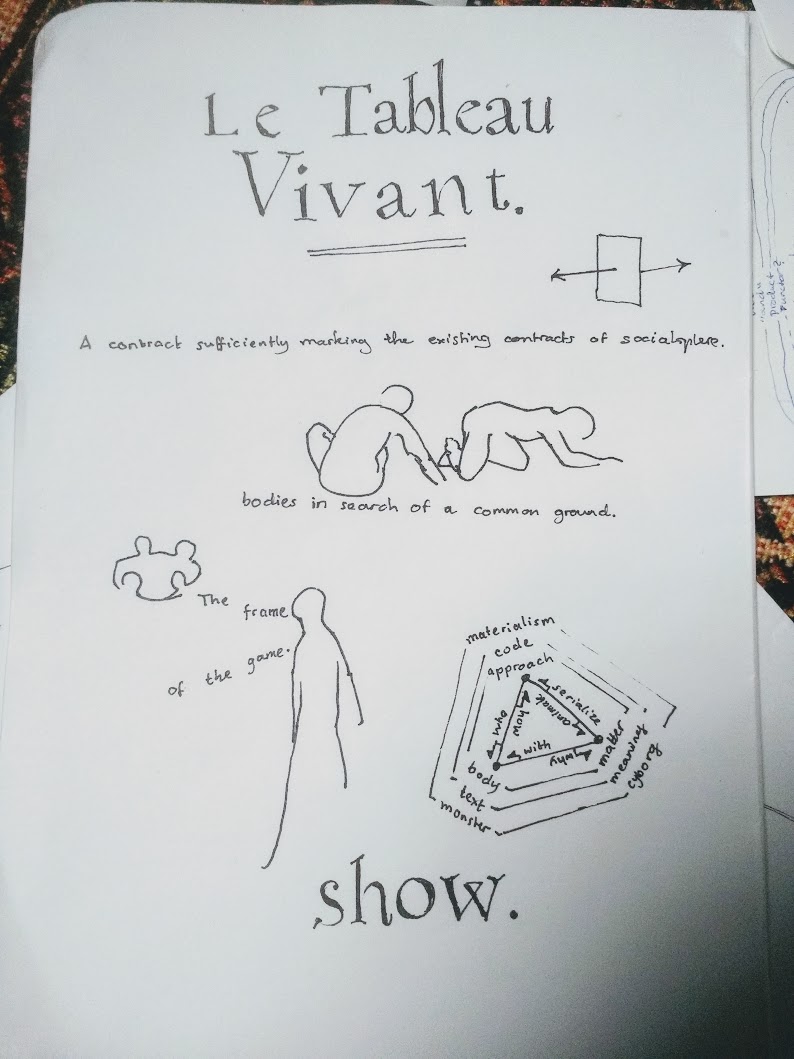 Le Tableau
Vivant.
A contract sufficiently marking the existing contracts of socialsphere.
bodies in search of a common ground.
The frame
of the game.
materialism
code
approach
serialize
animate
who
how
with
why
body
text
monster
matter
meaning
cyborg
show.
product